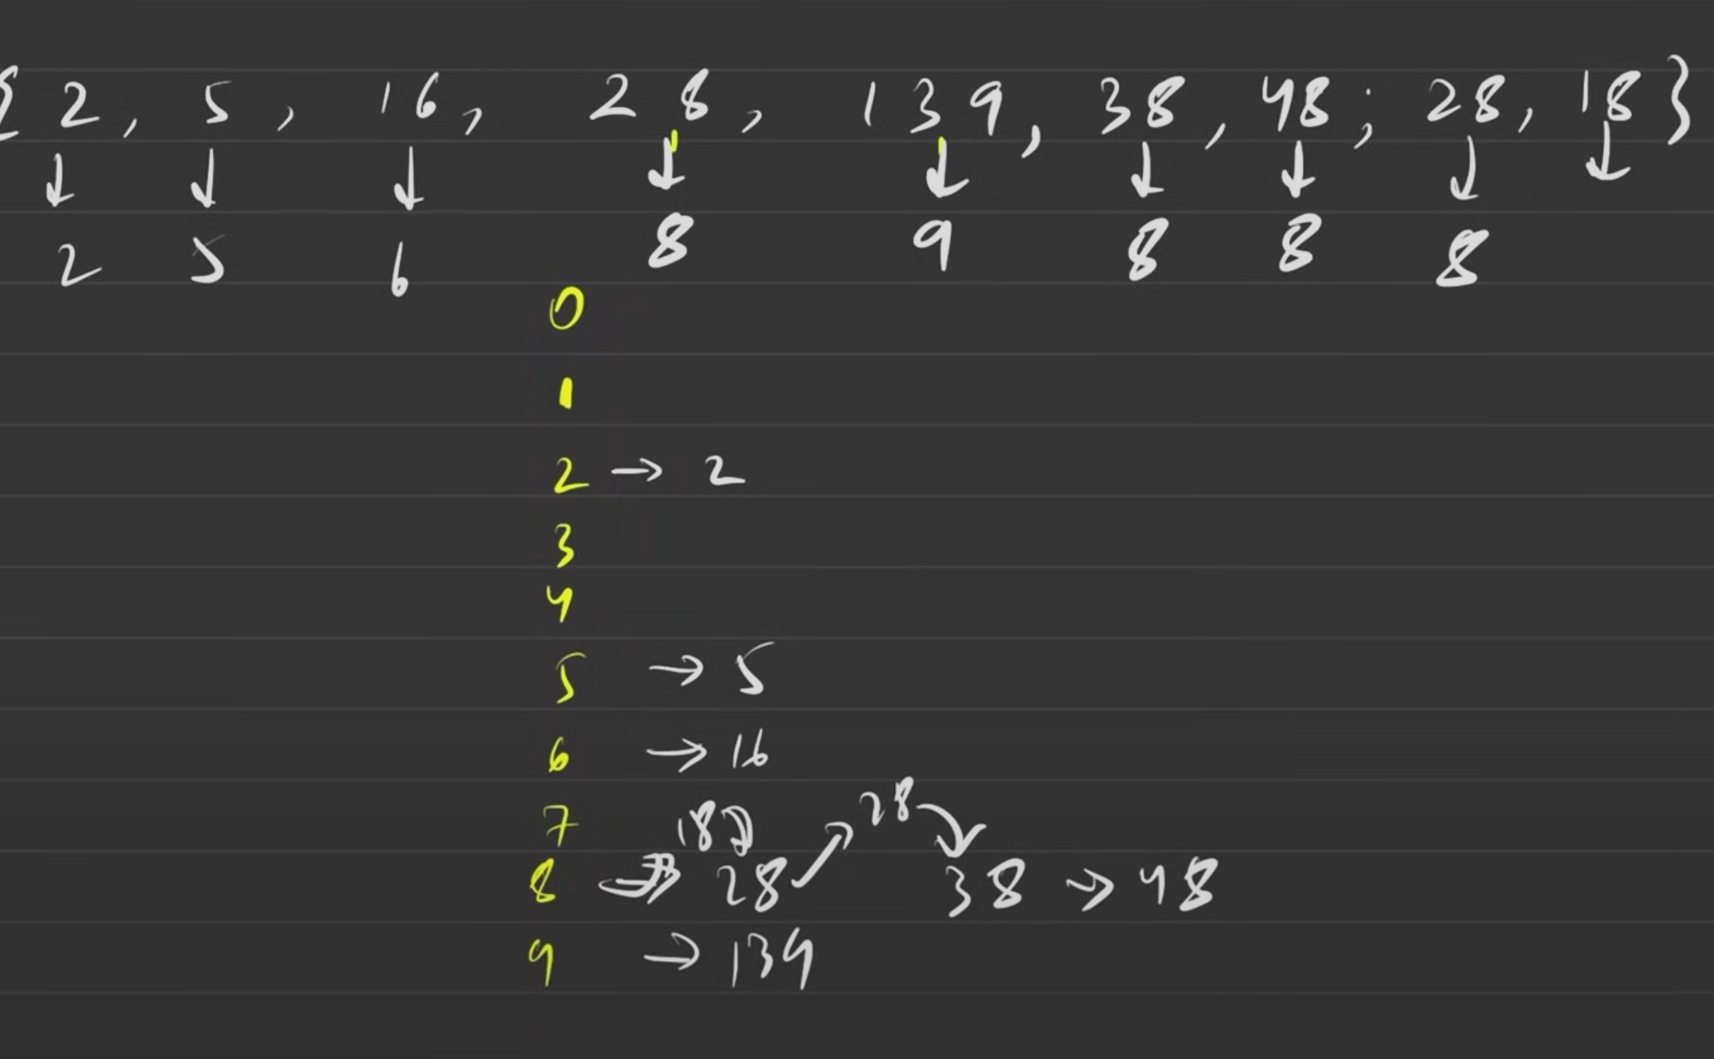 { 2, 5, 16, 28, 139, 38, 48; 28, 18 }
↓ ↓ ↓ ↓ ↓ ↓ ↓ ↓ ↓
2 5 6 8 9 8 8 8
0
1
2 → 2
3
4
5 → 5
6 → 16
7
8 → 18 → 28 → 28 → 38 → 48
9 → 139